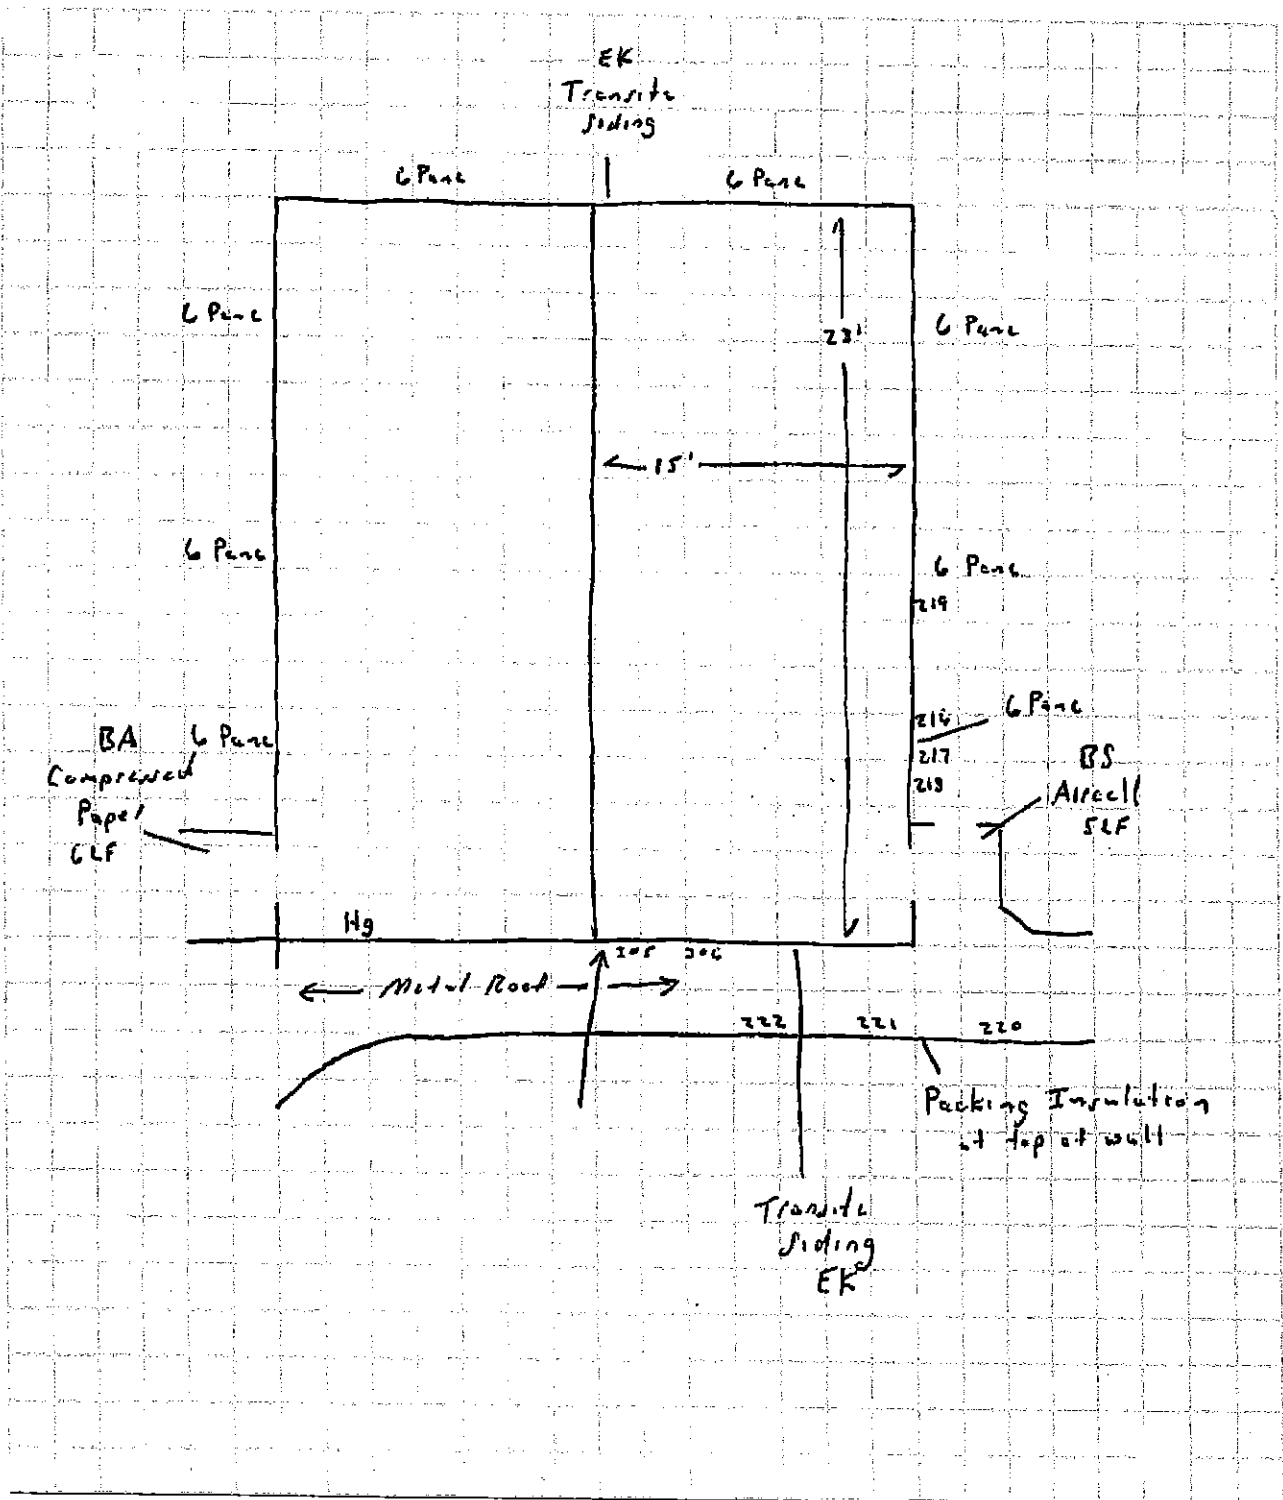 EK
Transite
Siding
6 Pane
6 Pane
6 Pane
6 Pane
23'
15'
6 Pane
6 Pane
219
216
6 Pane
217
218
BA
6 Pane
Compressed
Paper
6 LF
BS
Aircell
5LF
Hg
205
206
Metal Roof
222
221
220
Packing Insulation
at top of wall
Transite
Siding
EK